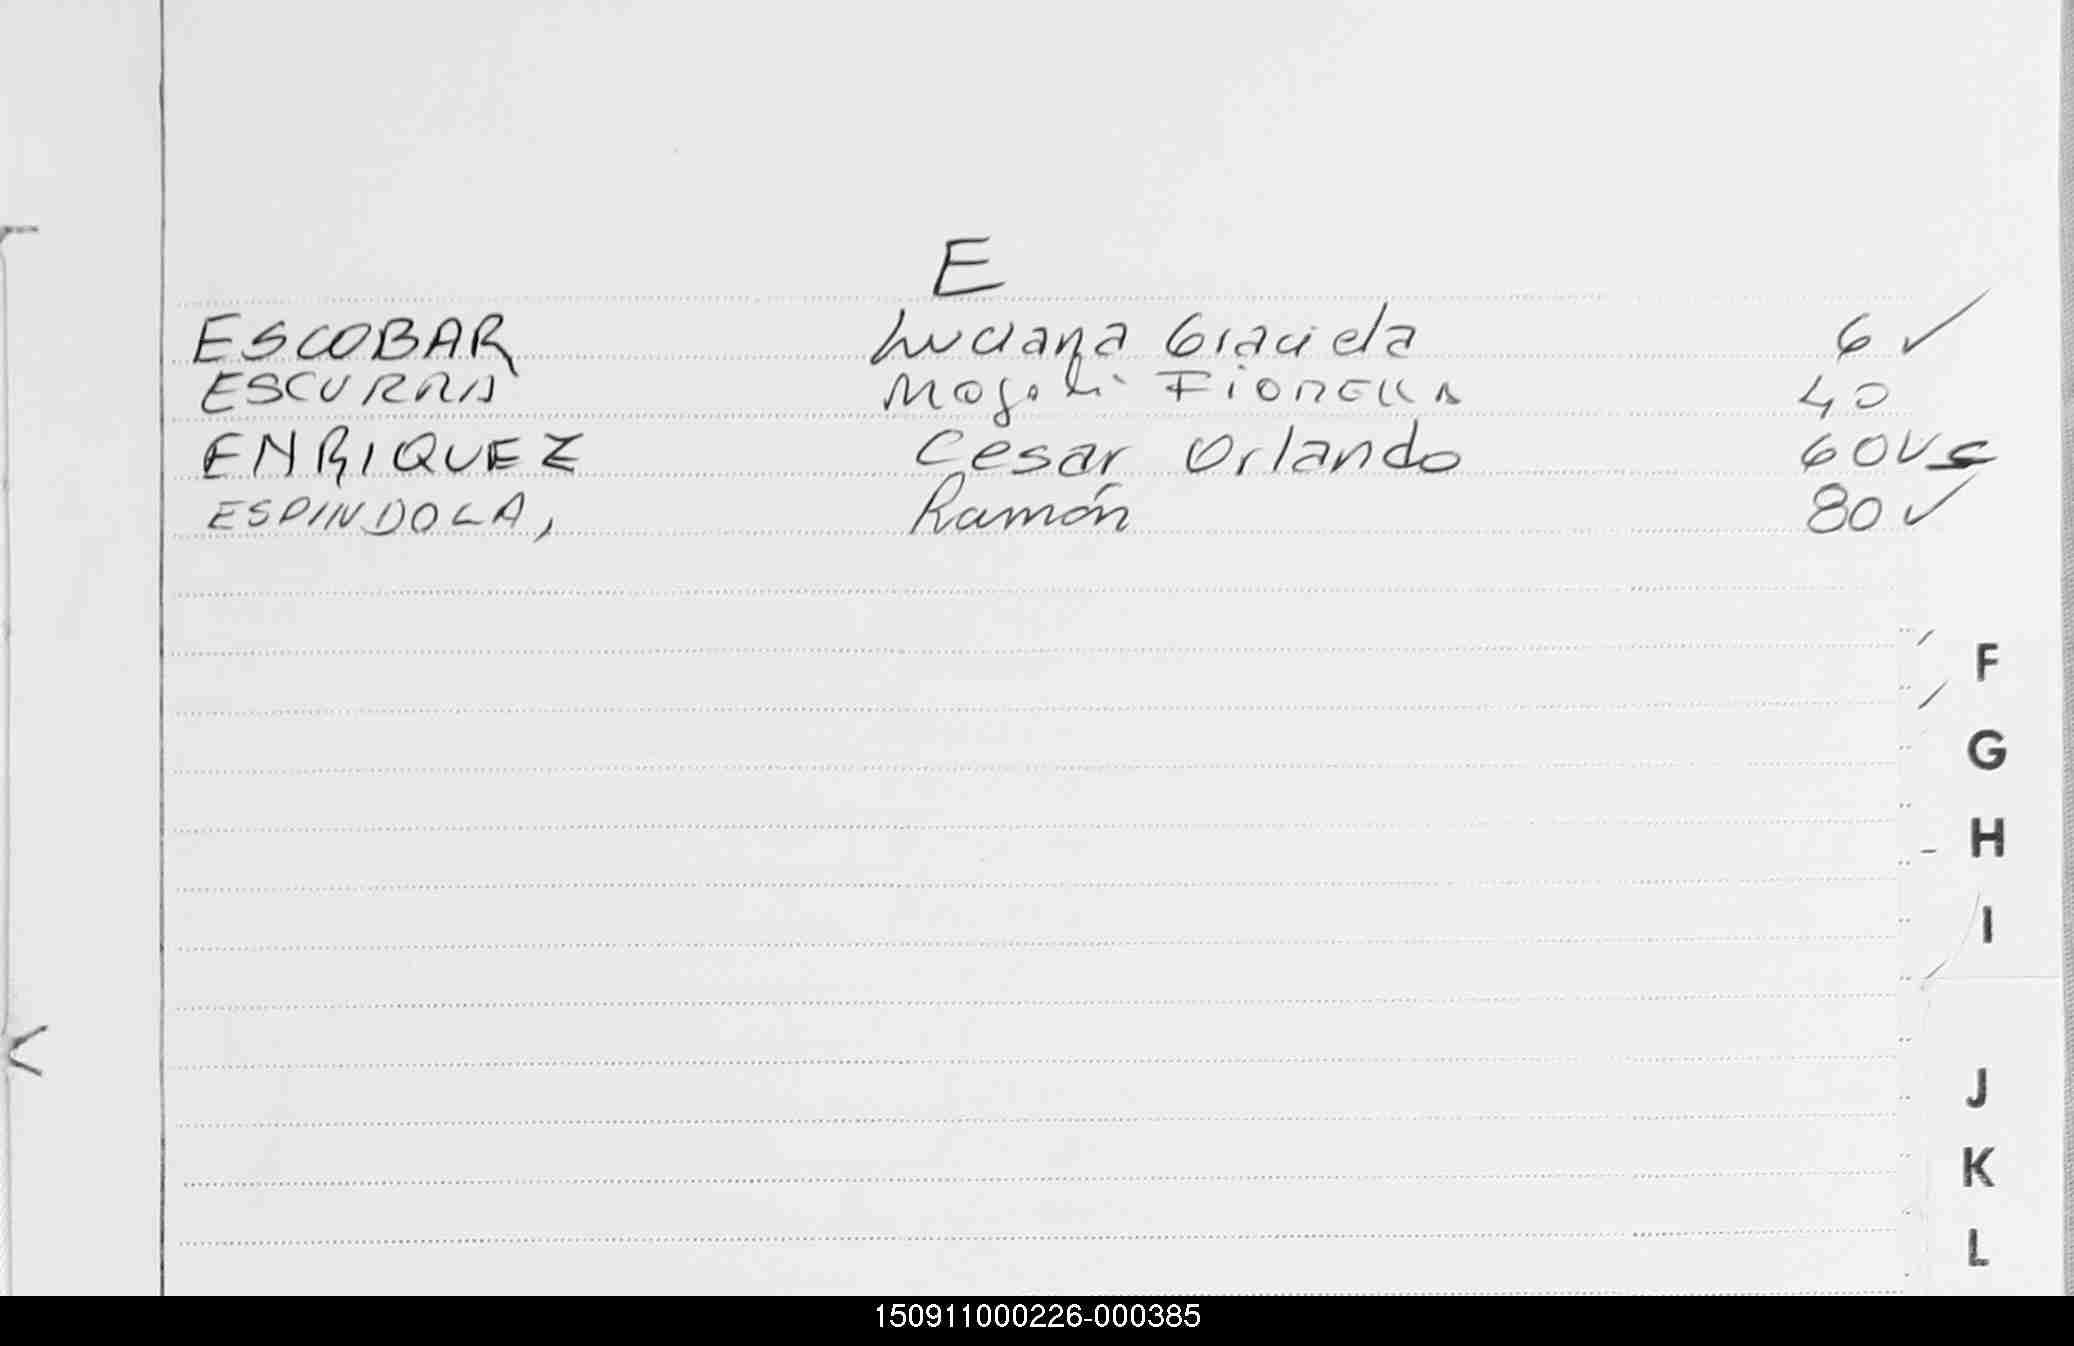 E
ESCOBAR Luciana Graciela 6 ✓
ESCURRA Magali Fiorella 40
ENRIQUEZ Cesar Orlando 60 ✓
ESPINDOLA, Ramón 80 ✓
F
G
H
I
J
K
L
150911000226-000385